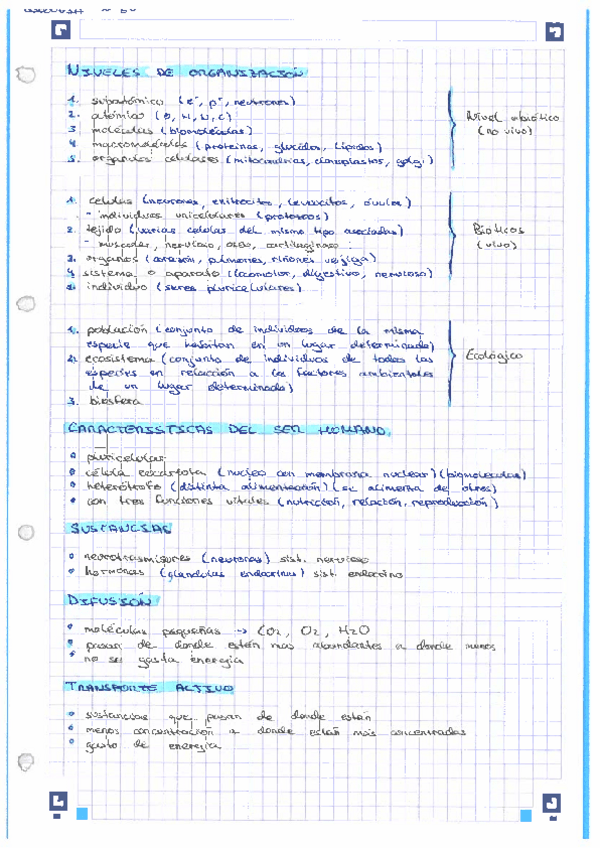 NIVELES DE ORGANIZACIÓN
1. subatómico (e⁻, p⁺, neutrones)
2. atómico (O, H, N, C)
3 moléculas (biomoléculas)
4. macromoléculas (proteinas, glucidos, lipidos)
5. organulos celulares (mitocondrias, cloroplastos, golgi)
Nivel abiótico
(no vivo)
1. celulas (neuronas, eritrocitos, leucocitos, óvulos)
- individuos unicelulares (protozoos)
2. tejido (varias celulas del mismo tipo asociadas)
- muscular, nervioso, oseo, cartilaginoso
3. organos (corazón, pulmones, riñones vejiga)
4 sistema o aparato (locomotor, digestivo, nervioso)
individuo (seres pluricelulares)
Bioticos
(vivo)
1. población (conjunto de individuos de la misma
especie que habitan en un lugar determinado)
2. ecosistema (conjunto de individuos de todas las
especies en relacción a los factores ambientales
de un lugar determinado)
3. biosfera
Ecológico
CARACTERISTICAS DEL SER HUMANO
pluricelular
célula eucariota (nucleo con membrana nuclear) (biomoleculas)
heterótrofo (distinta alimentación) (se alimenta de otros)
con tres funciones vitales (nutrición, relación, reproducción)
SUSTANCIAS
neurotrasmisores (neuronas) sist. nervioso
hormonas (glandulas endocrinas) sist. endocrino
DIFUSIÓN
moléculas pequeñas → CO2, O2, H2O
pasan de donde estén mas abundantes a donde menos
no se gasta energía
TRANSPORTE ACTIVO
sustancias que pasan de donde están
menos concentración a donde están más concentradas
gasto de energía